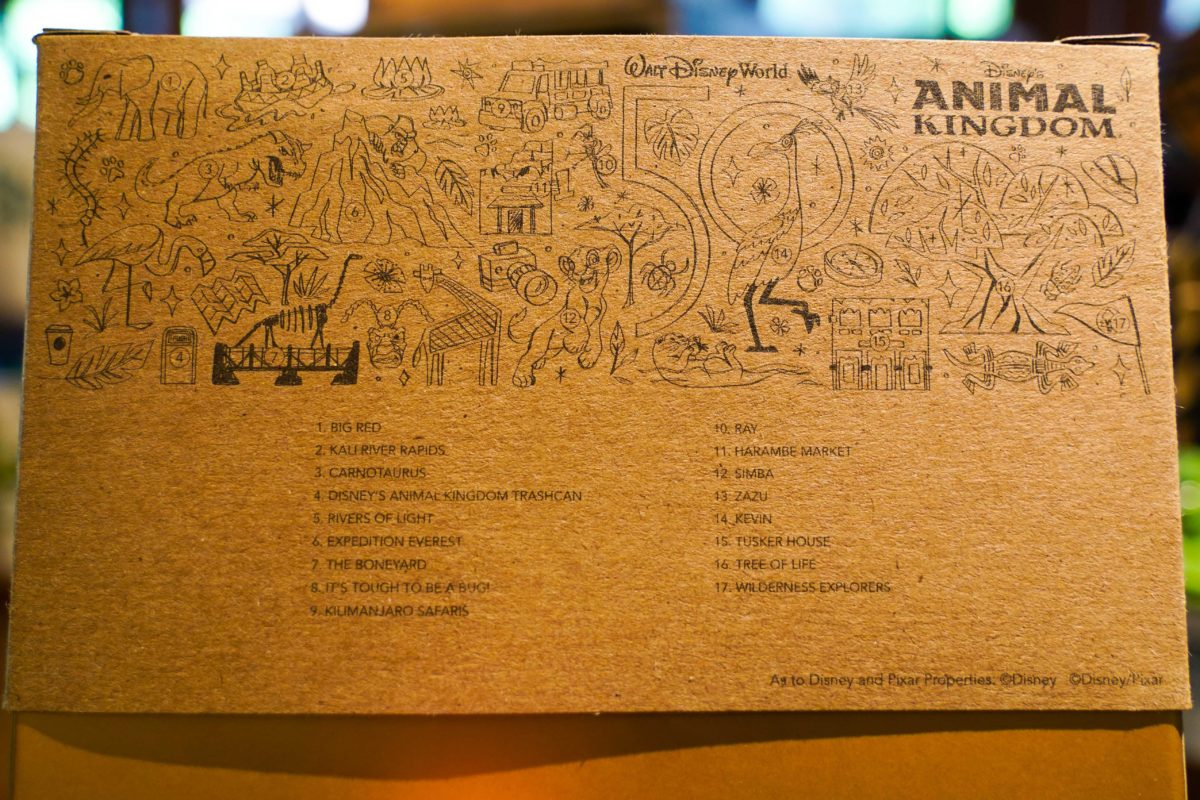 WALT DISNEY WORLD
DISNEY'S
ANIMAL
KINGDOM
50
1
2
5
9
13
3
6
10
11
14
12
8
7
4
15
16
17
1. BIG RED
2. KALI RIVER RAPIDS
3. CARNOTAURUS
4. DISNEY'S ANIMAL KINGDOM TRASHCAN
5. RIVERS OF LIGHT
6. EXPEDITION EVEREST
7. THE BONEYARD
8. IT'S TOUGH TO BE A BUG!
9. KILIMANJARO SAFARIS
10. RAY
11. HARAMBE MARKET
12. SIMBA
13. ZAZU
14. KEVIN
15. TUSKER HOUSE
16. TREE OF LIFE
17. WILDERNESS EXPLORERS
As to Disney and Pixar Properties: ©Disney ©Disney/Pixar